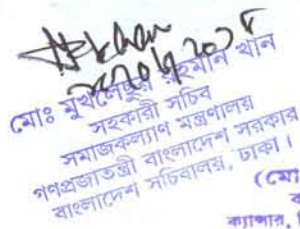 মোঃ মুখলেছুর রহমান খান
সহকারী সচিব
সমাজকল্যাণ মন্ত্রণালয়
গণপ্রজাতন্ত্রী বাংলাদেশ সরকার
বাংলাদেশ সচিবালয়, ঢাকা।
(মো
ক্যান্সার,